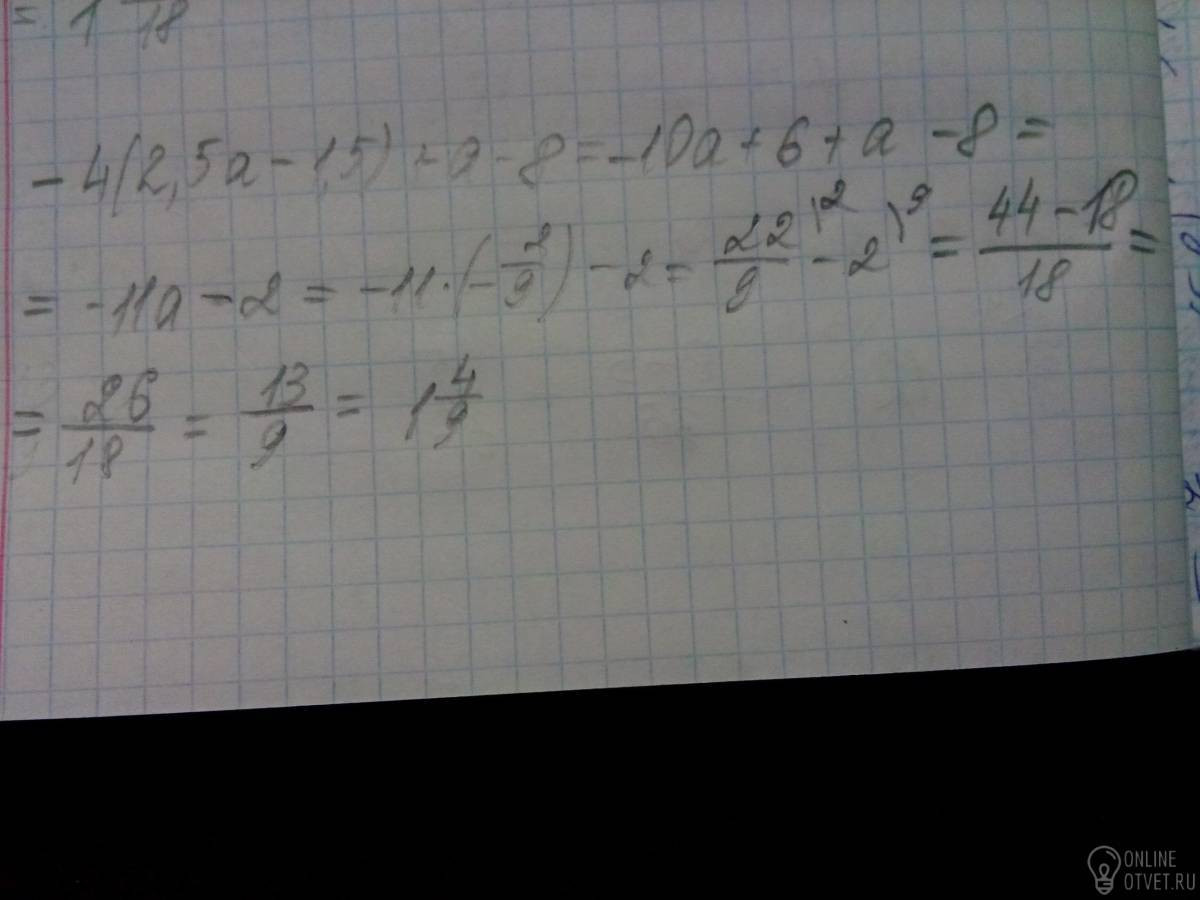 = 1 /18
-4(2,5a-1,5)+a-8=-10a+6+a-8=
= -11a-2=-11·(-2/9)-2= 22/9\2 -2\9 = 44-18/18 =
= 26/18 = 13/9 = 1 4/9
ONLINE
OTVET.RU